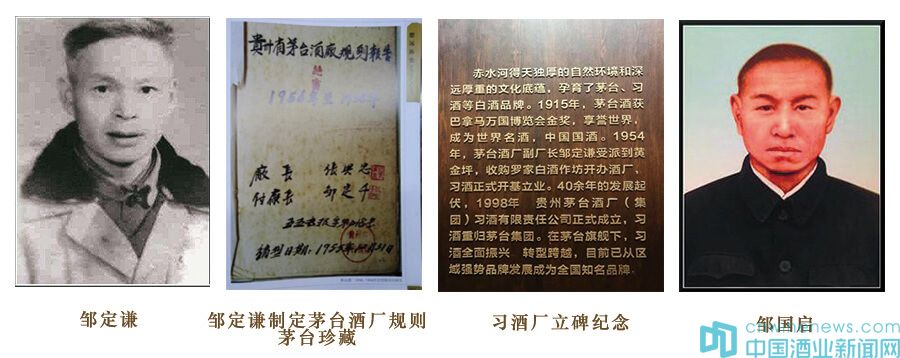 贵州省茅台酒厂规则报告
绝密
厰长 张兴忠
付廠长
1955年
赤水河得天独厚的自然环境和深
远厚重的文化底蕴，孕育了茅台、习
酒等白酒品牌。1915年，茅台酒获
巴拿马万国博览会金奖，享誉世界，
成为世界名酒，中国国酒。1954
年，茅台酒厂副厂长邹定谦受派到黄
金坪，收购罗家白酒作坊开办酒厂、
习酒正式开基立业。40余年的发展起
伏，1998年 贵州茅台酒厂（集
团）习酒有限责任公司正式成立，习
酒重归茅台集团。在茅台旗舰下，习
酒全面振兴 转型跨越，目前已从区
域强势品牌发展成为全国知名品牌。
邹定谦
邹定谦制定茅台酒厂规则
茅台珍藏
习酒厂立碑纪念
邹国启
cnwinenews.com
中国酒业新闻网